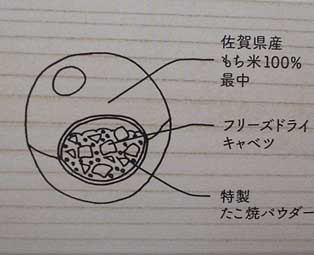 佐賀県産
もち米100%
最中
フリーズドライ
キャベツ
特製
たこ焼パウダー